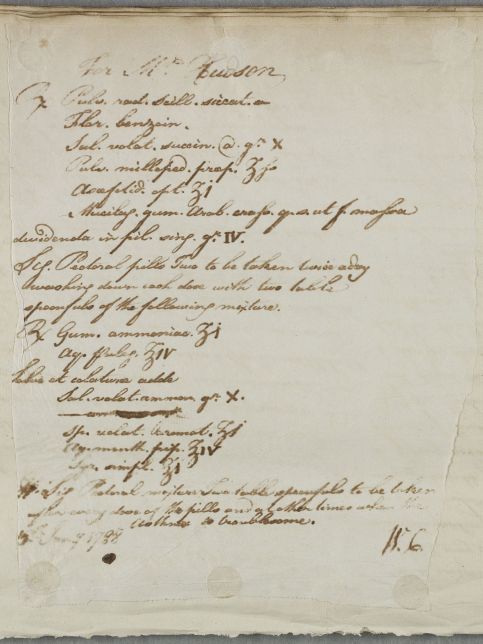 For Mr. Hewson
℞ Pulv. rad. scill. siccat. a
Flor. benzoin.
Sal. volat. succin. @. gr. X
Pulv. milleped. prep. ʒſs
Asafetid. opt. ʒj
Mucilag. gum. Arab. crass. q.s. ut f. massa
dividenda in pil. sing. gr. IV.
Sig. Pectoral pills Two to be taken twice a day
washing down each dose with two table
spoonfuls of the following mixture.
℞ Gum. ammoniac. ʒj
Aq. Puleg. ℥IV
et colatura adde
Sal. volat. ammon. gr. X.
Sp. volat. Aromat. ʒj
Aq. menth. pip. ℥IV
Syr. simpl. ℥j
Sig. Pectoral mixture Two table spoonfuls to be taken
after every dose of the pills and at other times when the
is troublesome.
Jany 1798
W. C.